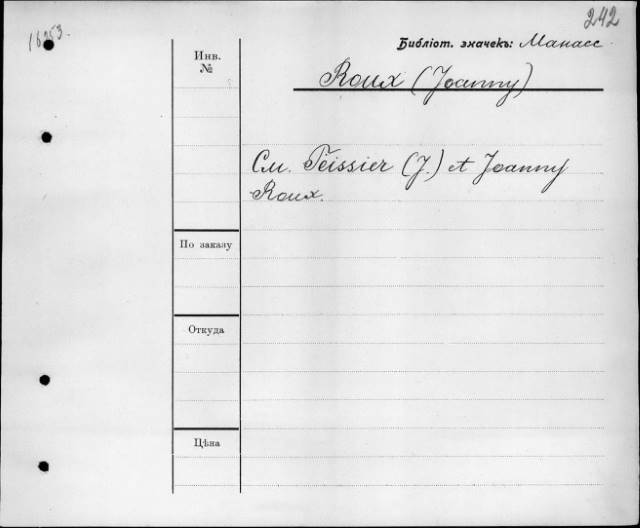 242
Библіот. значекъ: Манасс
Инв.
№
Roux (Joanny)
См. Teissier (J.) et Joanny
Roux.
По заказу
Откуда
Цѣна